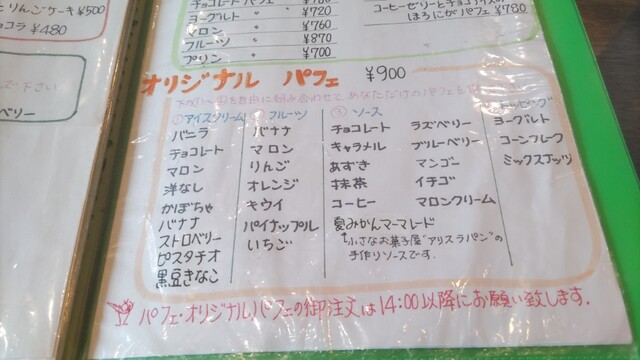 とりんごケーキ¥500
コラ ¥480
下さい
ベリー
チョコレートパフェ ¥780
ヨーグルト 〃 ¥720
マロン 〃 ¥760
フルーツ 〃 ¥870
プリン 〃 ¥700
コーヒーゼリーとチョコアイスの
ほろにがパフェ ¥780
オリジナル パフェ ¥900
を自由に組み合わせて、あなただけのパフェを
①アイスクリーム
バニラ
チョコレート
マロン
洋なし
かぼちゃ
バナナ
ストロベリー
ピスタチオ
黒豆きなこ
②フルーツ
バナナ
マロン
りんご
オレンジ
キウイ
パイナップル
いちご
③ソース
チョコレート
キャラメル
あずき
抹茶
コーヒー
ラズベリー
ブルーベリー
マンゴー
イチゴ
マロンクリーム
夏みかんマーマレード
小さなお菓子屋"アリスラパン"の
手作りソースです。
トッピング
ヨーグルト
コーンフレーク
ミックスナッツ
パフェ・オリジナルパフェの御注文は14:00以降にお願い致します.